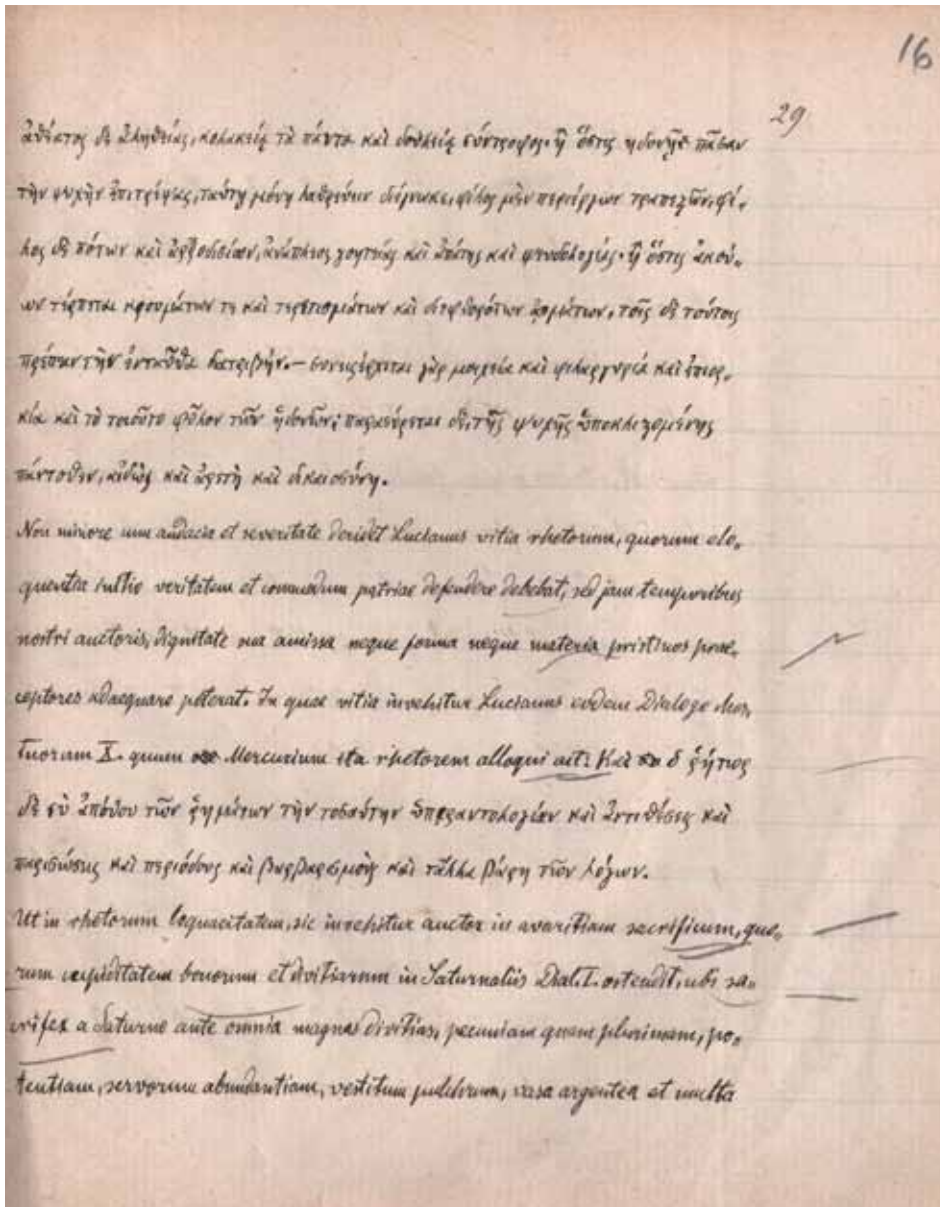 16
29
ἀθέατος δὲ ἀληθείας, κολακείᾳ τὰ πάντα καὶ δουλείᾳ σύντροφος· ἢ ὅστις ἡδονῇ πᾶσαν
τὴν ψυχὴν ἐπιτρέψας, ταύτῃ μόνῃ λατρεύειν διέγνωκε, φίλος μὲν περιέργων τραπεζῶν, φί-
λος δὲ πότων καὶ ἀφροδισίων, ἀνάπλεως γοητείας καὶ ἀπάτης καὶ ψευδολογίας· ἢ ὅστις ἀκού-
ων τέρπεται κρουμάτων τε καὶ τερετισμάτων καὶ διεφθορότων ᾀσμάτων, τοῖς δὲ τούτοις
πρέπειν τὴν ἐνταῦθα διατριβήν. — συνεισέρχεται γὰρ μοιχεία καὶ φιλαργυρία καὶ ἐπιορ-
κία καὶ τὸ τοιοῦτο φῦλον τῶν ἡδονῶν; παρασύρεται δὲ, τῆς ψυχῆς ὑποκλυζομένης
πάντοθεν, αἰδὼς καὶ ἀρετὴ καὶ δικαιοσύνη.
Non minore cum audacia et severitate deridet Lucianus vitia rhetorum, quorum elo-
quentia initio veritatem et commodum patriae defendere debebat, sed jam temporibus
nostri auctoris, dignitate sua amissa neque forma neque materia pristinos prae-
ceptores adaequare poterat. In quae vitia invehitur Lucianus eodem Dialogo Mor-
tuorum X. quum Mercurium ita rhetorem alloqui ait: Καὶ ὁ ῥήτωρ
δὲ σὺ ἀπόθου τῶν ῥημάτων τὴν τοσαύτην ἀπεραντολογίαν καὶ ἀντιθέσεις καὶ
παρισώσεις καὶ περιόδους καὶ βαρβαρισμοὺς καὶ τἄλλα βάρη τῶν λόγων.
Ut in rhetorum loquacitatem, sic invehitur auctor in avaritiam sacrificum, quo-
rum cupiditatem bonorum et divitiarum in Saturnaliis Dial. I. ostendit, ubi sa-
crifex a Saturno ante omnia magnas divitias, pecuniam quam plurimam, po-
tentiam, servorum abundantiam, vestitum pulchrum, vasa argentea et multa